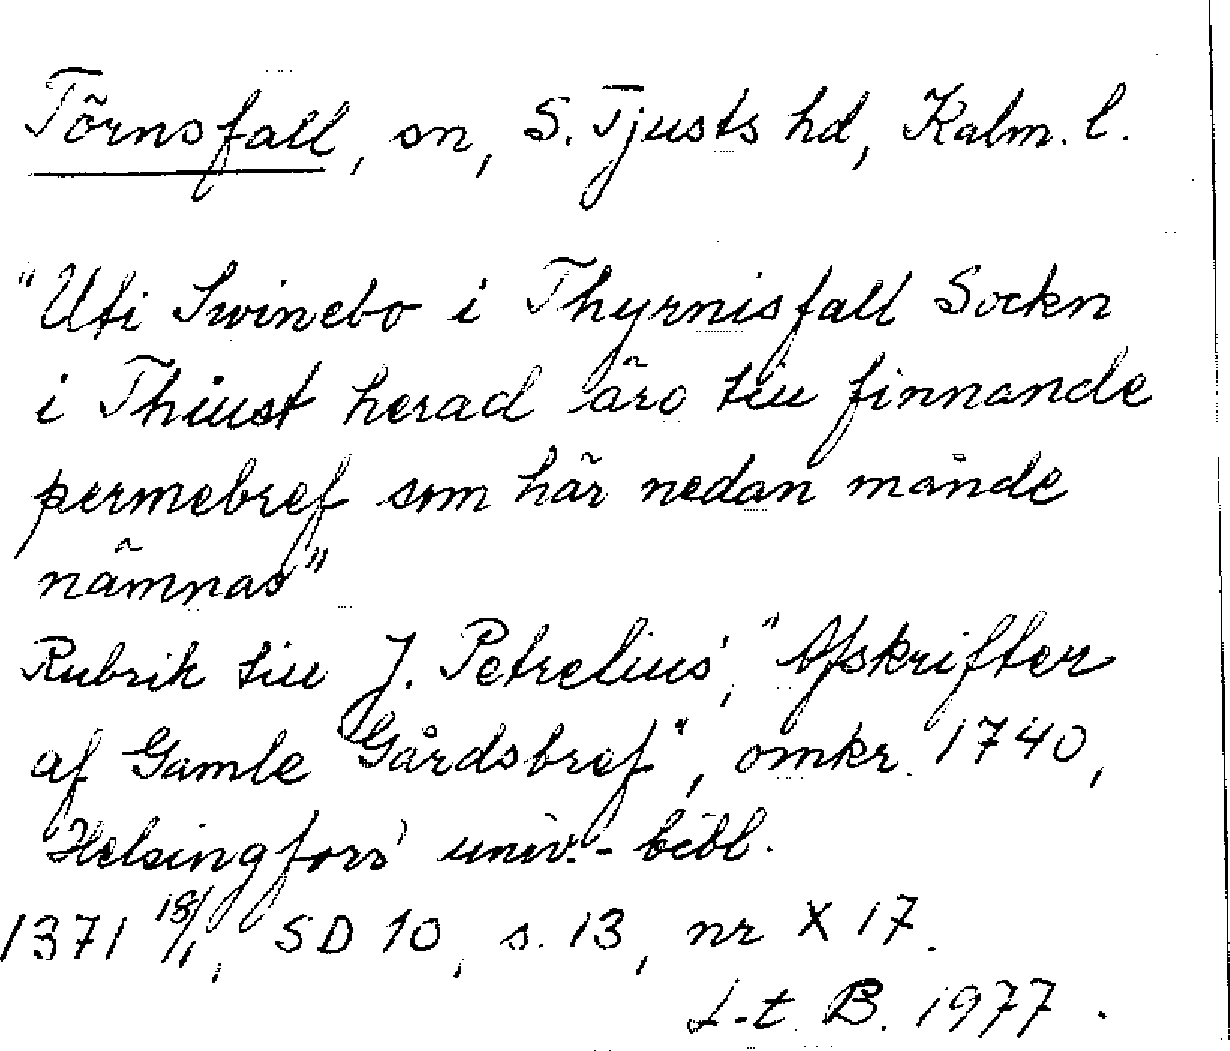 Törnsfall, sn, S. Tjusts hd, Kalm. l.
"Uti Swinebo i Thyrnisfall Sockn
i Thiust herad äro till finnande
permebref som här nedan månde
nämnas"
Rubrik till J. Petrelius', "Afskrifter
af Gamle Gårdsbref", omkr. 1740,
Helsingfors' univ.-bibl.
1371 18/1, SD 10, s. 13, nr X 17.
L-t B. 1977.